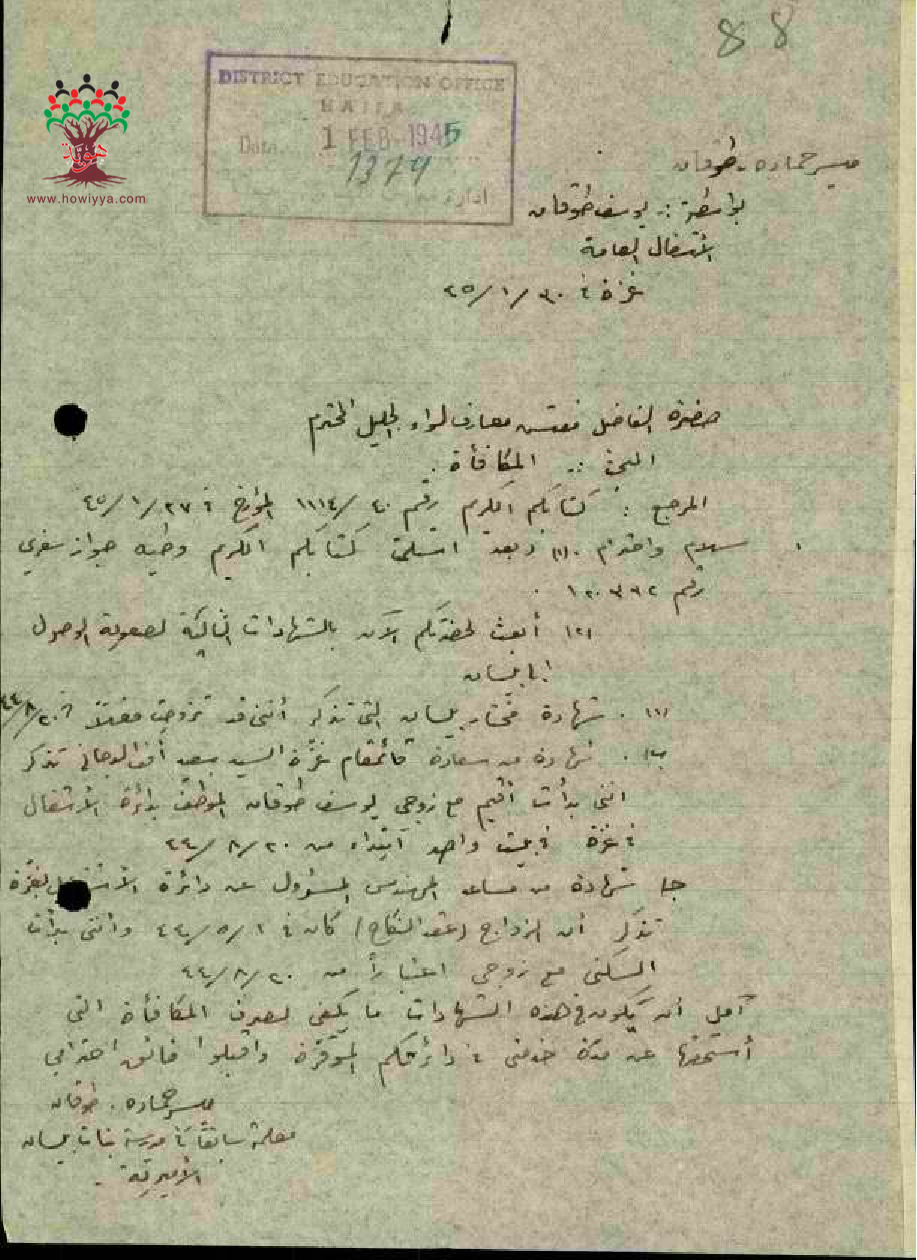 88
DISTRICT EDUCATION OFFICE
HAIFA
Date. 1 FEB 1945
1379
ادارة
هوية
www.howiyya.com
ميسر حماده . طوقان
بواسطة :. يوسف طوقان
الأشغال العامة
غزة في ٣٠/١/٤٥
حضرة الفاضل مفتش معارف لواء الجليل المحترم
البحث :. المكافأة .
المرجع : كتابكم الكريم رقم ٤٠/١١١٤ المؤرخ في ٢٧/١/٤٥
سلام واحترام (١) فبعد استلمت كتابكم الكريم وطيه جواز سفري
رقم ١٢٠٣٣٢ .
(٢) أبعث لحضرتكم الآن بالشهادات التالية لصعوبة الوصول
الى بيسان
(١) . شهادة مختار بيسان التي تذكر أنني قد تزوجت فعلاً في ٢٠/٨/٤٤
ب) . شهادة من سعادة قائمقام غزة السيد أفندي الدجاني تذكر
انني بدأت أقيم مع زوجي يوسف طوقان الموظف بدائرة الأشغال
في غزة في بيت واحد ابتداء من ٢٠/٨/٤٤
ج) شهادة من مساعد المهندس المسؤول عن دائرة الأشغال بغزة
تذكر أن الزواج (عقد النكاح) كان في ١/٥/٤٤ وانني بدأت
السكنى مع زوجي اعتباراً من ٢٠/٨/٤٤
آمل أن يكون في هذه الشهادات ما يكفي لصرف المكافأة التي
أستحقها عن مدة خدمتي في دائرتكم الموقرة واقبلوا فائق احترامي
ميسر حماده . طوقان
معلمة سابقا في مدرسة بنات بيسان
الأميرية .